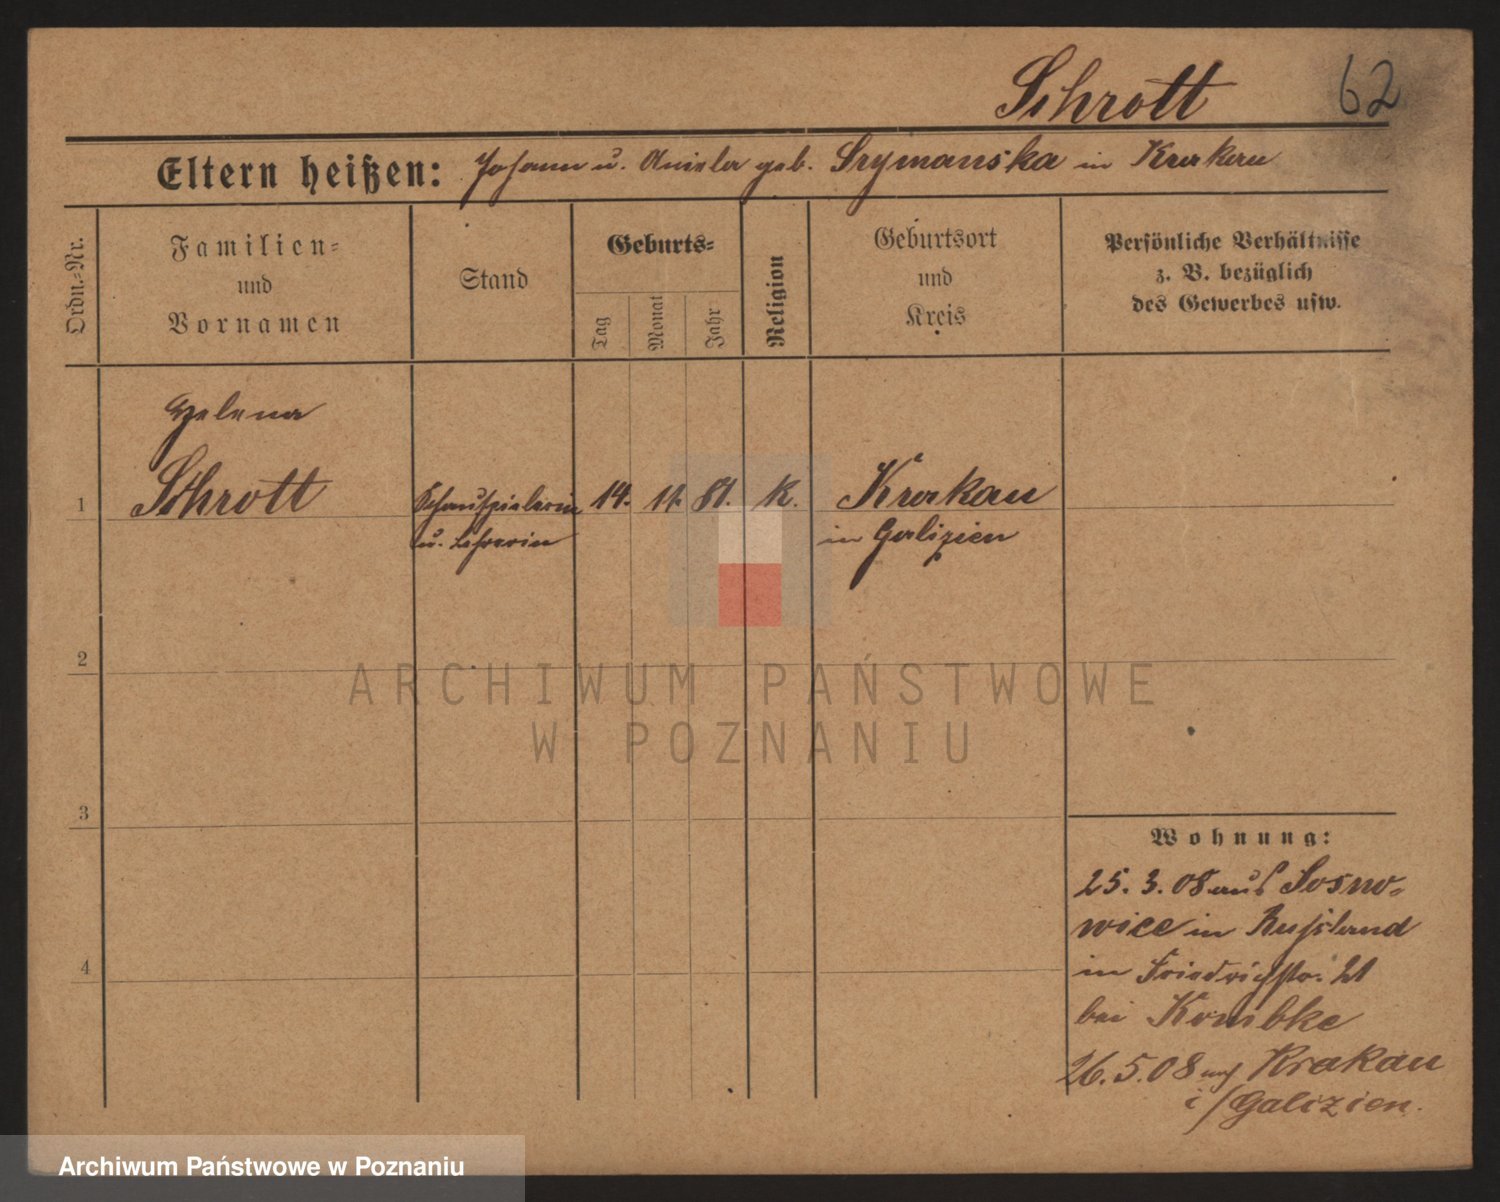 Schrott 62
Eltern heißen: Johann u. Aniela geb. Srymanska in Krakau
Ordn.-Nr.
Familien-
und
Vornamen
Stand
Geburts-
Tag
Monat
Jahr
Religion
Geburtsort
und
Kreis
Persönliche Verhältnisse
z. B. bezüglich
des Gewerbes usw.
Helena
1 Schrott Schauspielerin 14. 11. 81. K. Krakau
u. Lehrerin in Galizien
2
3
4
Wohnung:
25. 3. 08 aus Sosno-
wice in Russland
in Friedrichstr. 21
bei Kombke
26. 5. 08 nach Krakau
i/Galizien.
ARCHIWUM PAŃSTWOWE
W POZNANIU
Archiwum Państwowe w Poznaniu